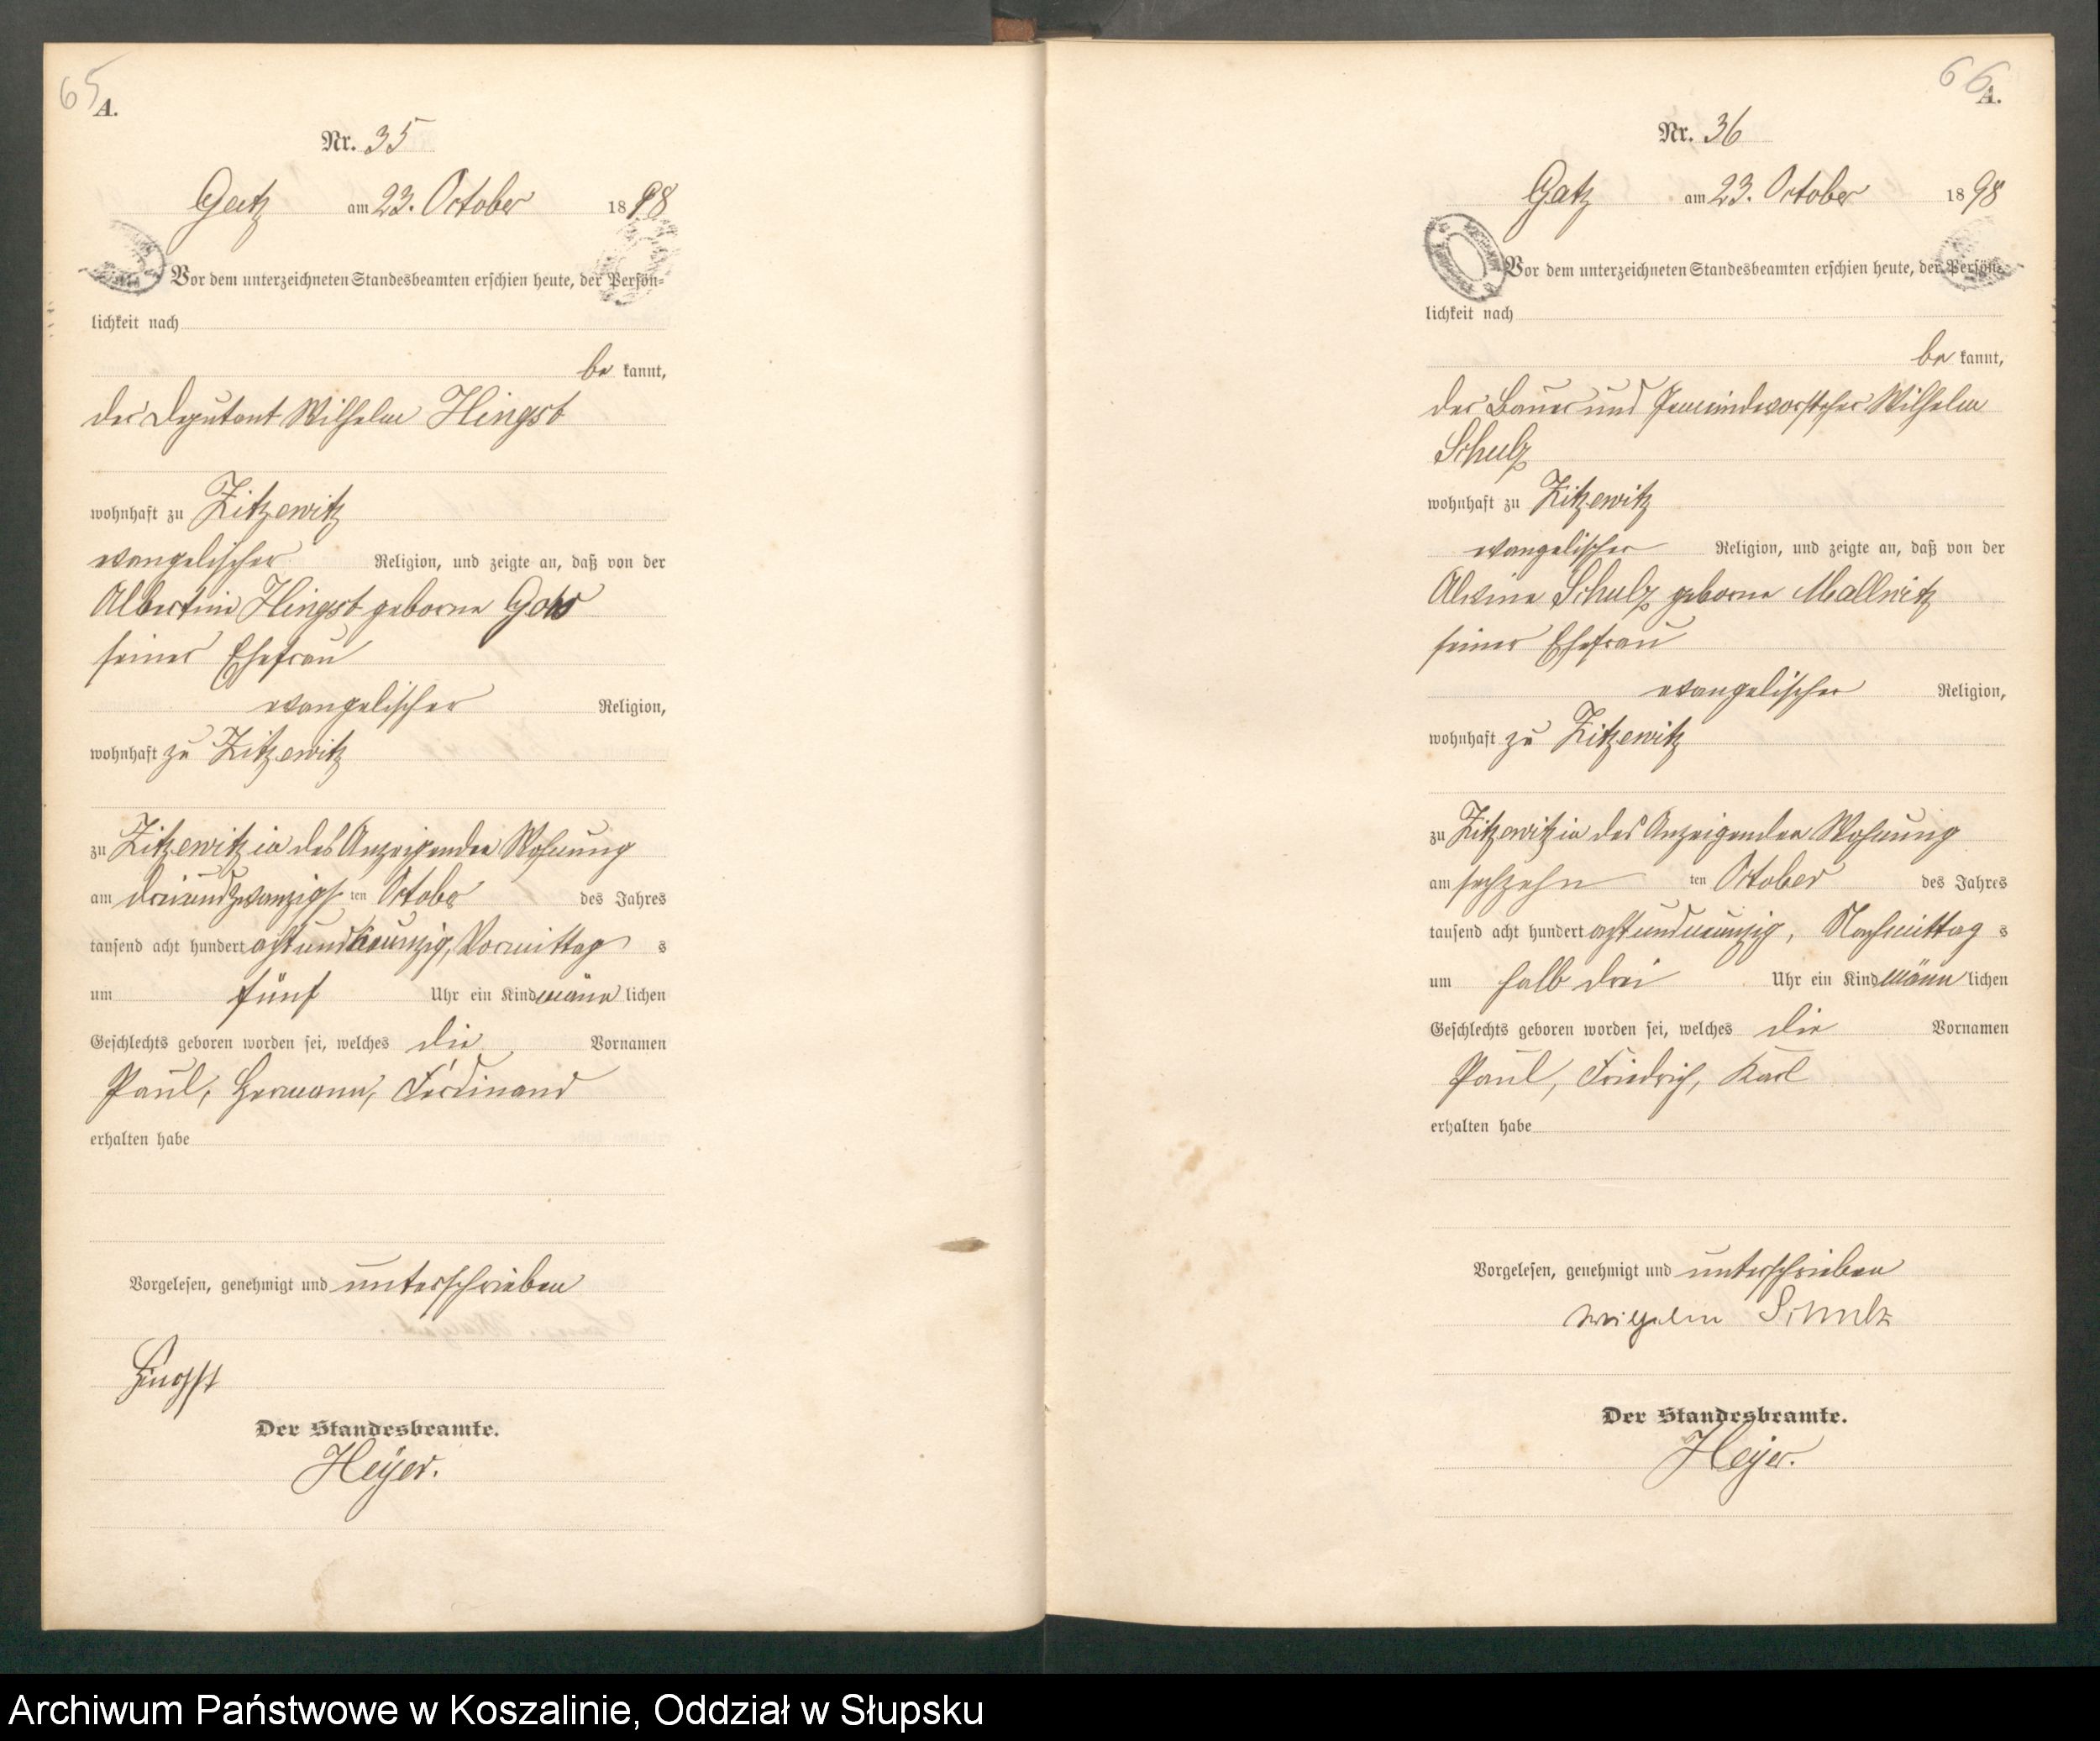 65
A.
Nr. 35
Gatz am 23. October 1898
Vor dem unterzeichneten Standesbeamten erschien heute, der Persön=
lichkeit nach
be kannt,
der Deputant Wilhelm Hingst
wohnhaft zu Zitzewitz
evangelischer Religion, und zeigte an, daß von der
Albertine Hingst geborne
seiner Ehefrau
evangelischer Religion,
wohnhaft zu Zitzewitz
zu Zitzewitz in des Anzeigenden Wohnung
am dreiundzwanzigsten October des Jahres
tausend acht hundert achtundneunzig, Vormittag s
um fünf Uhr ein Kind männlichen
Geschlechts geboren worden sei, welches die Vornamen
Paul, Hermann, Ferdinand
erhalten habe
Vorgelesen, genehmigt und unterschrieben
Hingst
Der Standesbeamte.
Heÿer.
66
A.
Nr. 36
Gatz am 23. October 1898
Vor dem unterzeichneten Standesbeamten erschien heute, der Persön=
lichkeit nach
be kannt,
der Bauer und Gemeindevorsteher Wilhelm
Schulz
wohnhaft zu Zitzewitz
evangelischer Religion, und zeigte an, daß von der
Alwine Schulz geborne Mallwitz
seiner Ehefrau
evangelischer Religion,
wohnhaft zu Zitzewitz
zu Zitzewitz in des Anzeigenden Wohnung
am sechzehn ten October des Jahres
tausend acht hundert achtundneunzig, Nachmittag s
um halb drei Uhr ein Kind männlichen
Geschlechts geboren worden sei, welches die Vornamen
Paul, Friedrich, Karl
erhalten habe
Vorgelesen, genehmigt und unterschrieben
Wilhelm Schulz
Der Standesbeamte.
Heÿer.
Archiwum Państwowe w Koszalinie, Oddział w Słupsku